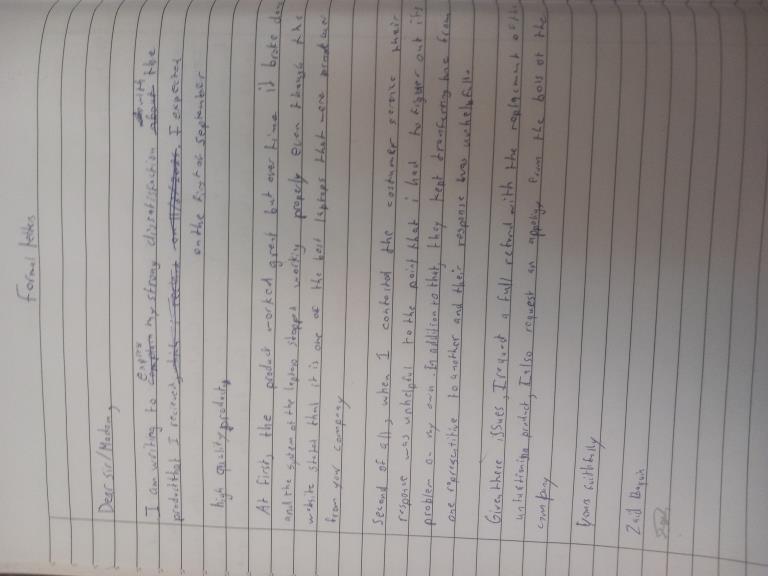 Formal letters
Dear Sir/Madam,
with
express
I am writing to complain my strong dissatisfaction about the
product that I recieved, I expected
on the first of September
high quality products
At first, the product worked great but over time it broke down
and the system of the laptop stopped working properly even though the
website states that it is one of the best laptops that were
from your company
Second of all, when I the costumer service their
response was unhelpful to the point that i had to figuer out its
problem on my own. In addition to that, they kept transferring me from
one to another and their response was unhelpfull.
Given these issues, I request a full refund with the replacement of the
product, I also request an from the boss of the
company
faithfully
Zaid